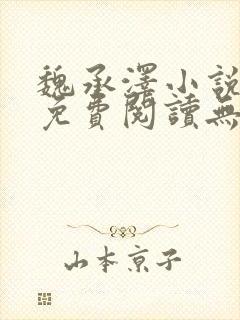 魏承澤小説
免費閱讀無
山本京子